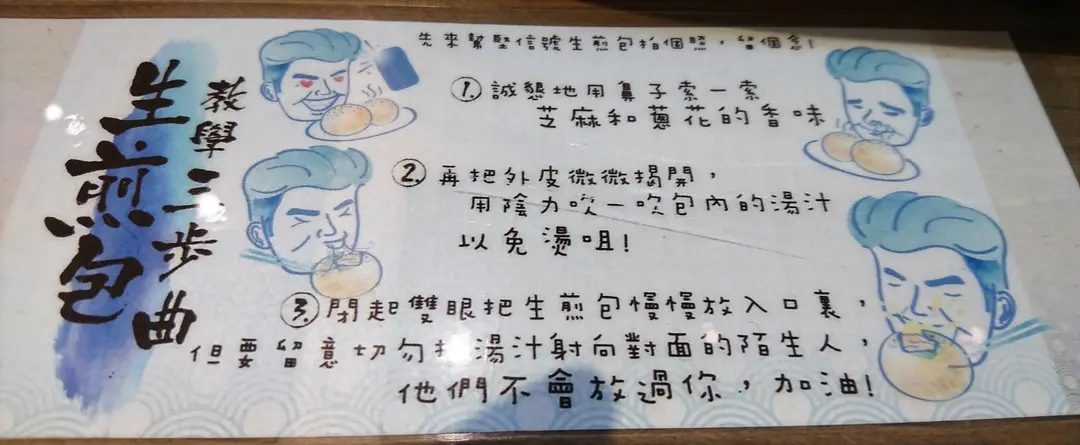 生煎包
三步曲
先來幫堅信號生煎包拍個照，留個念!
1. 誠懇地用鼻子索一索
芝麻和蔥花的香味
2. 再把外皮微微揭開，
用陰力吹一吹包內的湯汁
以免燙咀!
3. 閉起雙眼把生煎包慢慢放入口裏，
但要留意切勿把湯汁射向對面的陌生人，
他們不會放過你，加油!